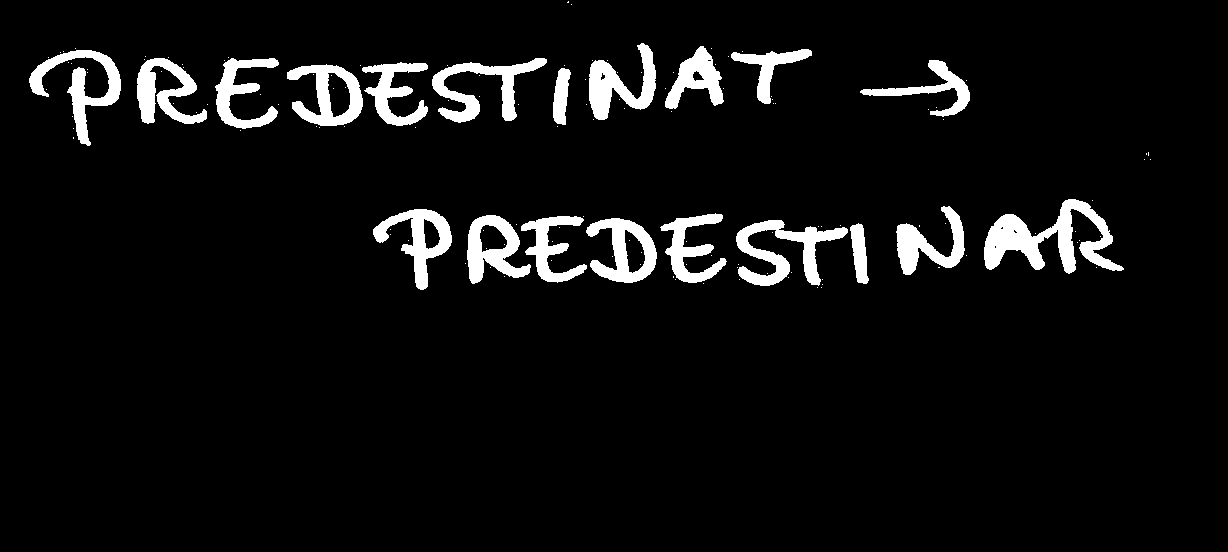 PREDESTINAT →
PREDESTINAR